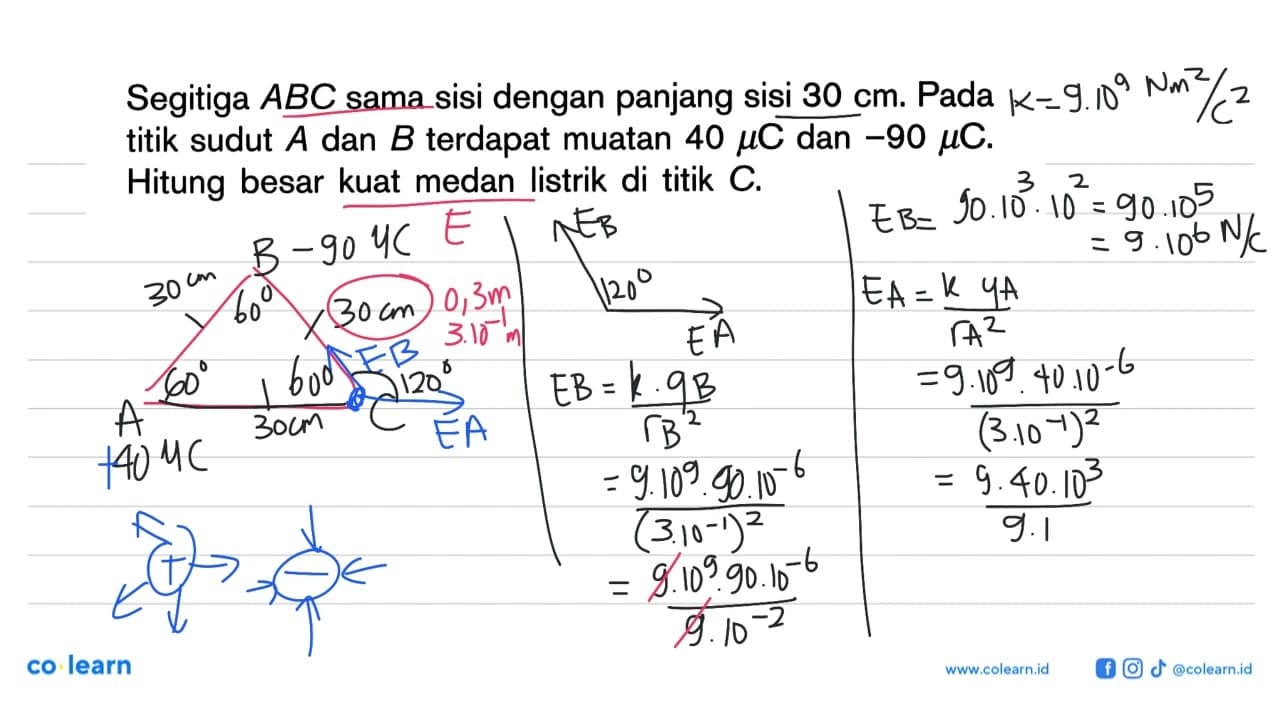 Segitiga ABC sama sisi dengan panjang sisi 30 cm. Pada
titik sudut A dan B terdapat muatan 40 μC dan −90 μC.
Hitung besar kuat medan listrik di titik C.
k = 9.10⁹ Nm²/C²
E
B −90 μC
30 cm
60°
30 cm
0,3 m
3.10⁻¹ m
EB
60°
60°
120°
A
30 cm
C
EA
+40 μC
+
−
EB
120°
EA
EB = k . qB
rB²
= 9.10⁹ . 90.10⁻⁶
(3.10⁻¹)²
= 9.10⁹ . 90.10⁻⁶
9.10⁻²
EB = 90.10³ . 10² = 90.10⁵
= 9.10⁶ N/C
EA = k qA
rA²
= 9.10⁹ . 40.10⁻⁶
(3.10⁻¹)²
= 9.40.10³
9.1
co learn
www.colearn.id
@colearn.id